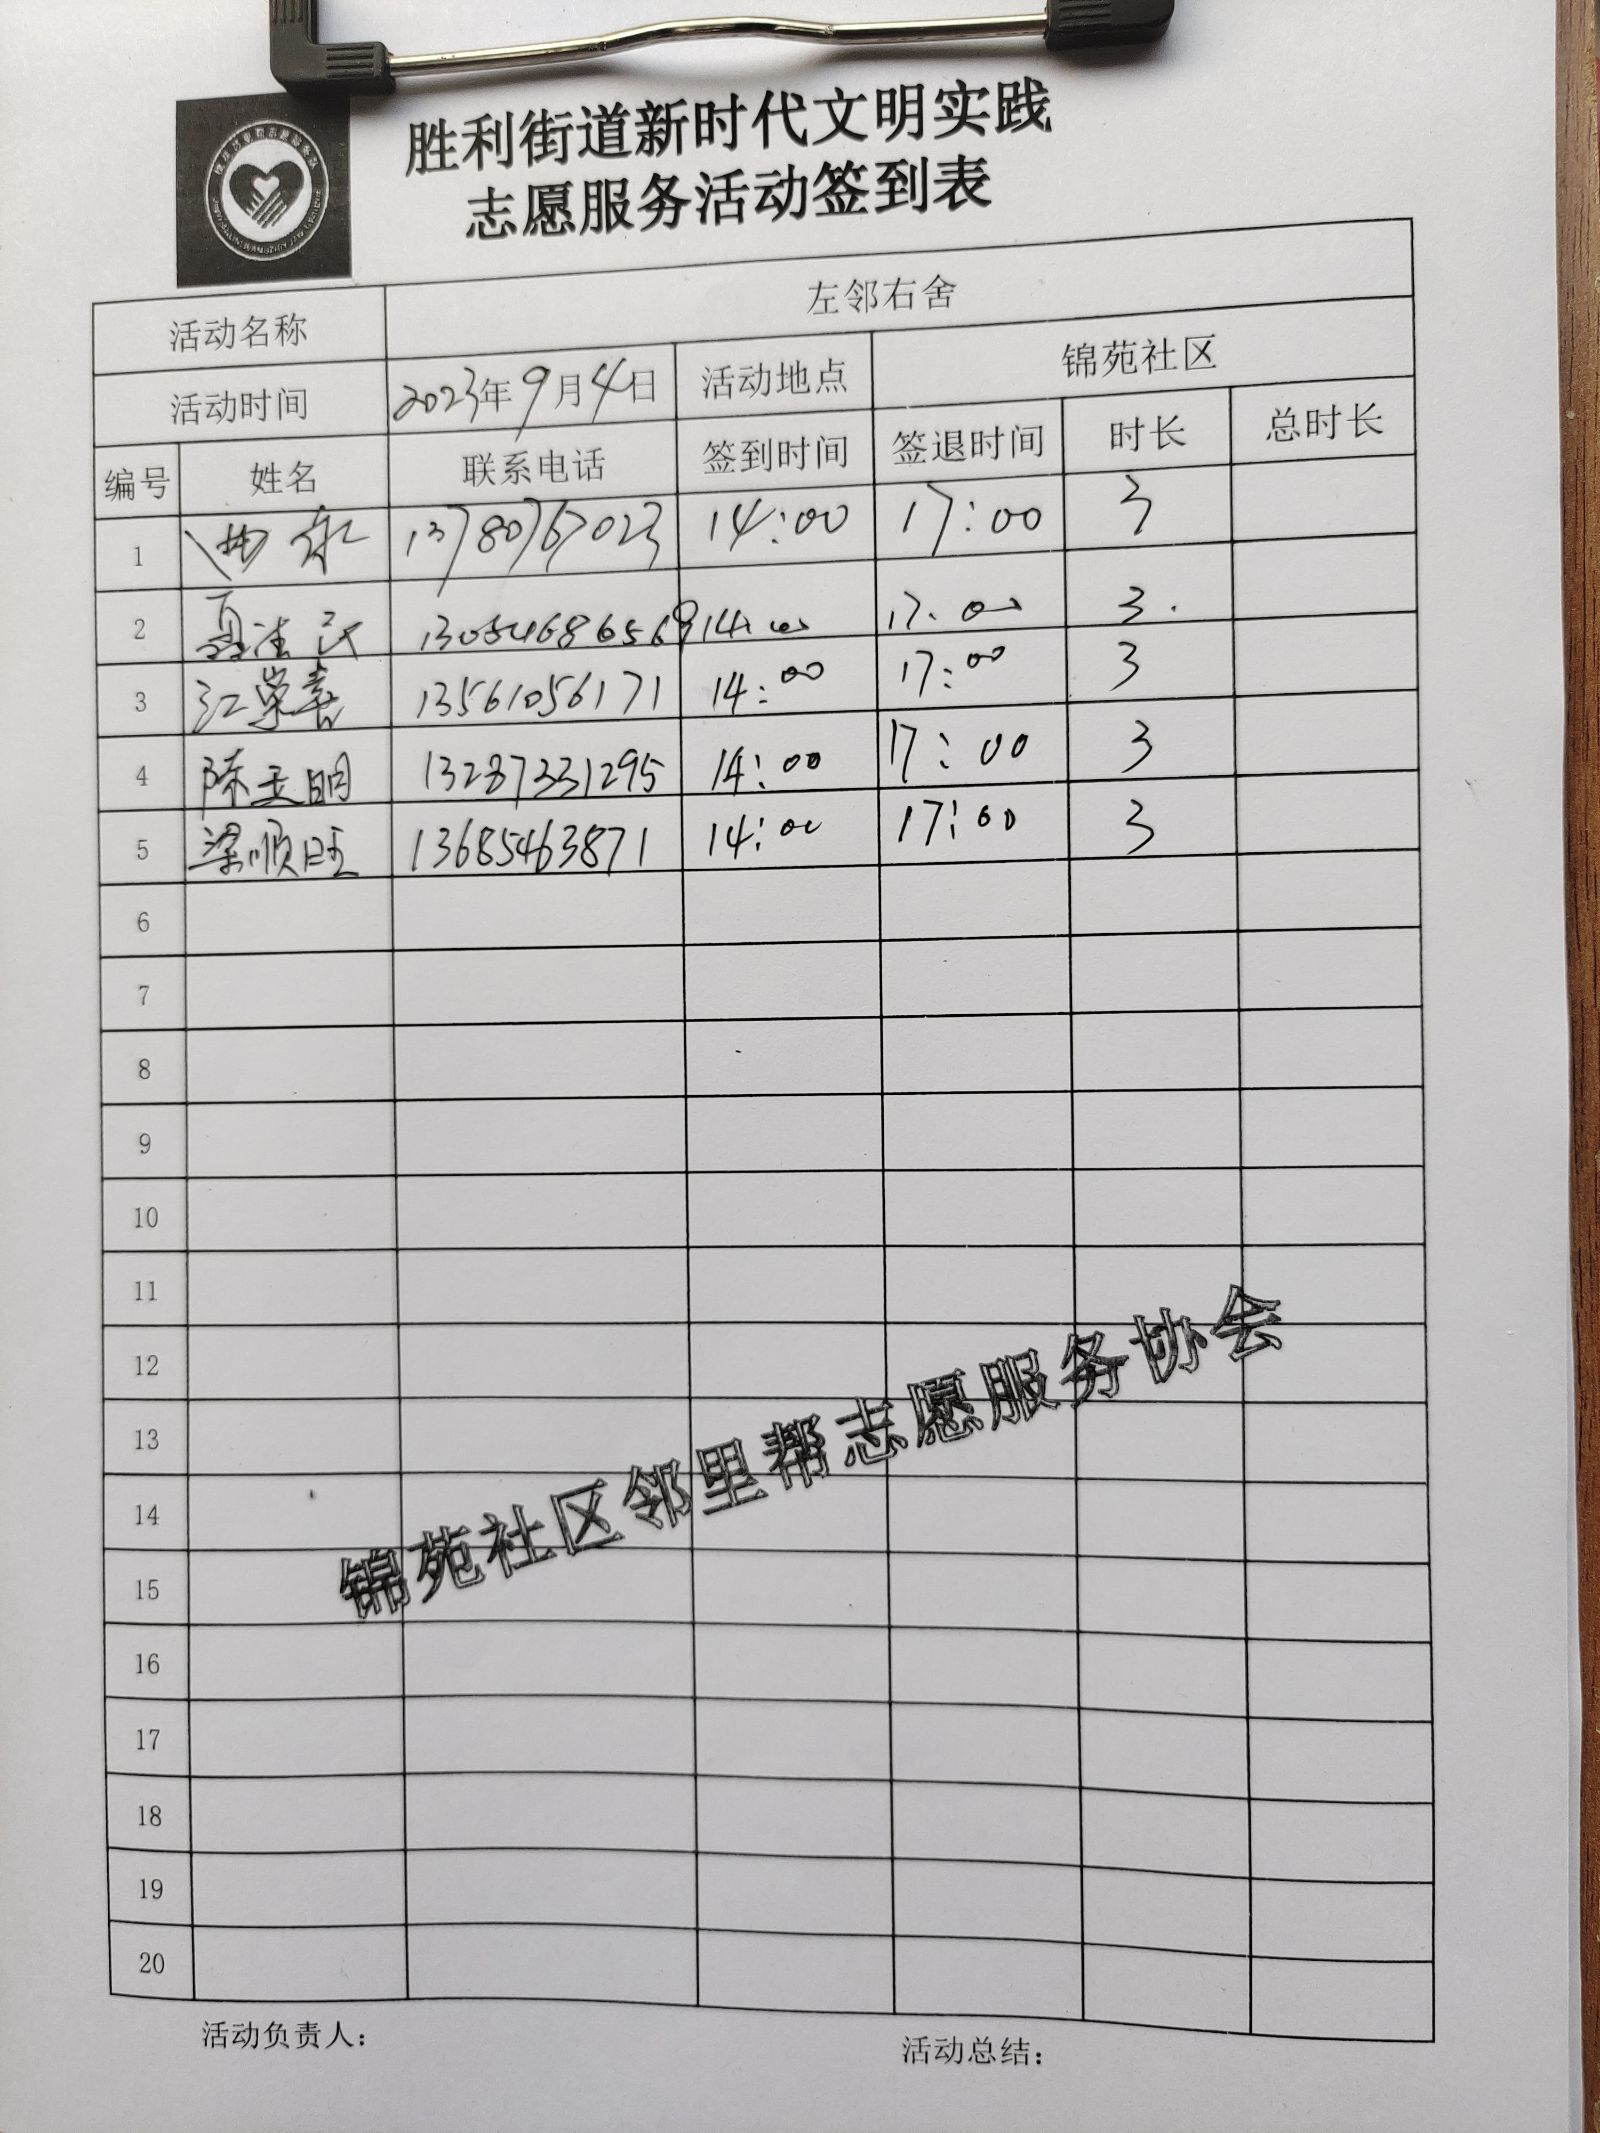 胜利街道新时代文明实践
志愿服务活动签到表
活动名称 左邻右舍
活动时间 2023年9月4日 活动地点 锦苑社区
编号 姓名 联系电话 签到时间 签退时间 时长 总时长
1 13780767023 14:00 17:00 3
2 13054686569 14:00 17:00 3.
3 江荣喜 13561056171 14:00 17:00 3
4 陈玉明 13287331295 14:00 17:00 3
5 梁顺旺 13685463871 14:00 17:00 3
6
7
8
9
10
11
12
13
14
15
16
17
18
19
20
锦苑社区邻里帮志愿服务协会
活动负责人： 活动总结：